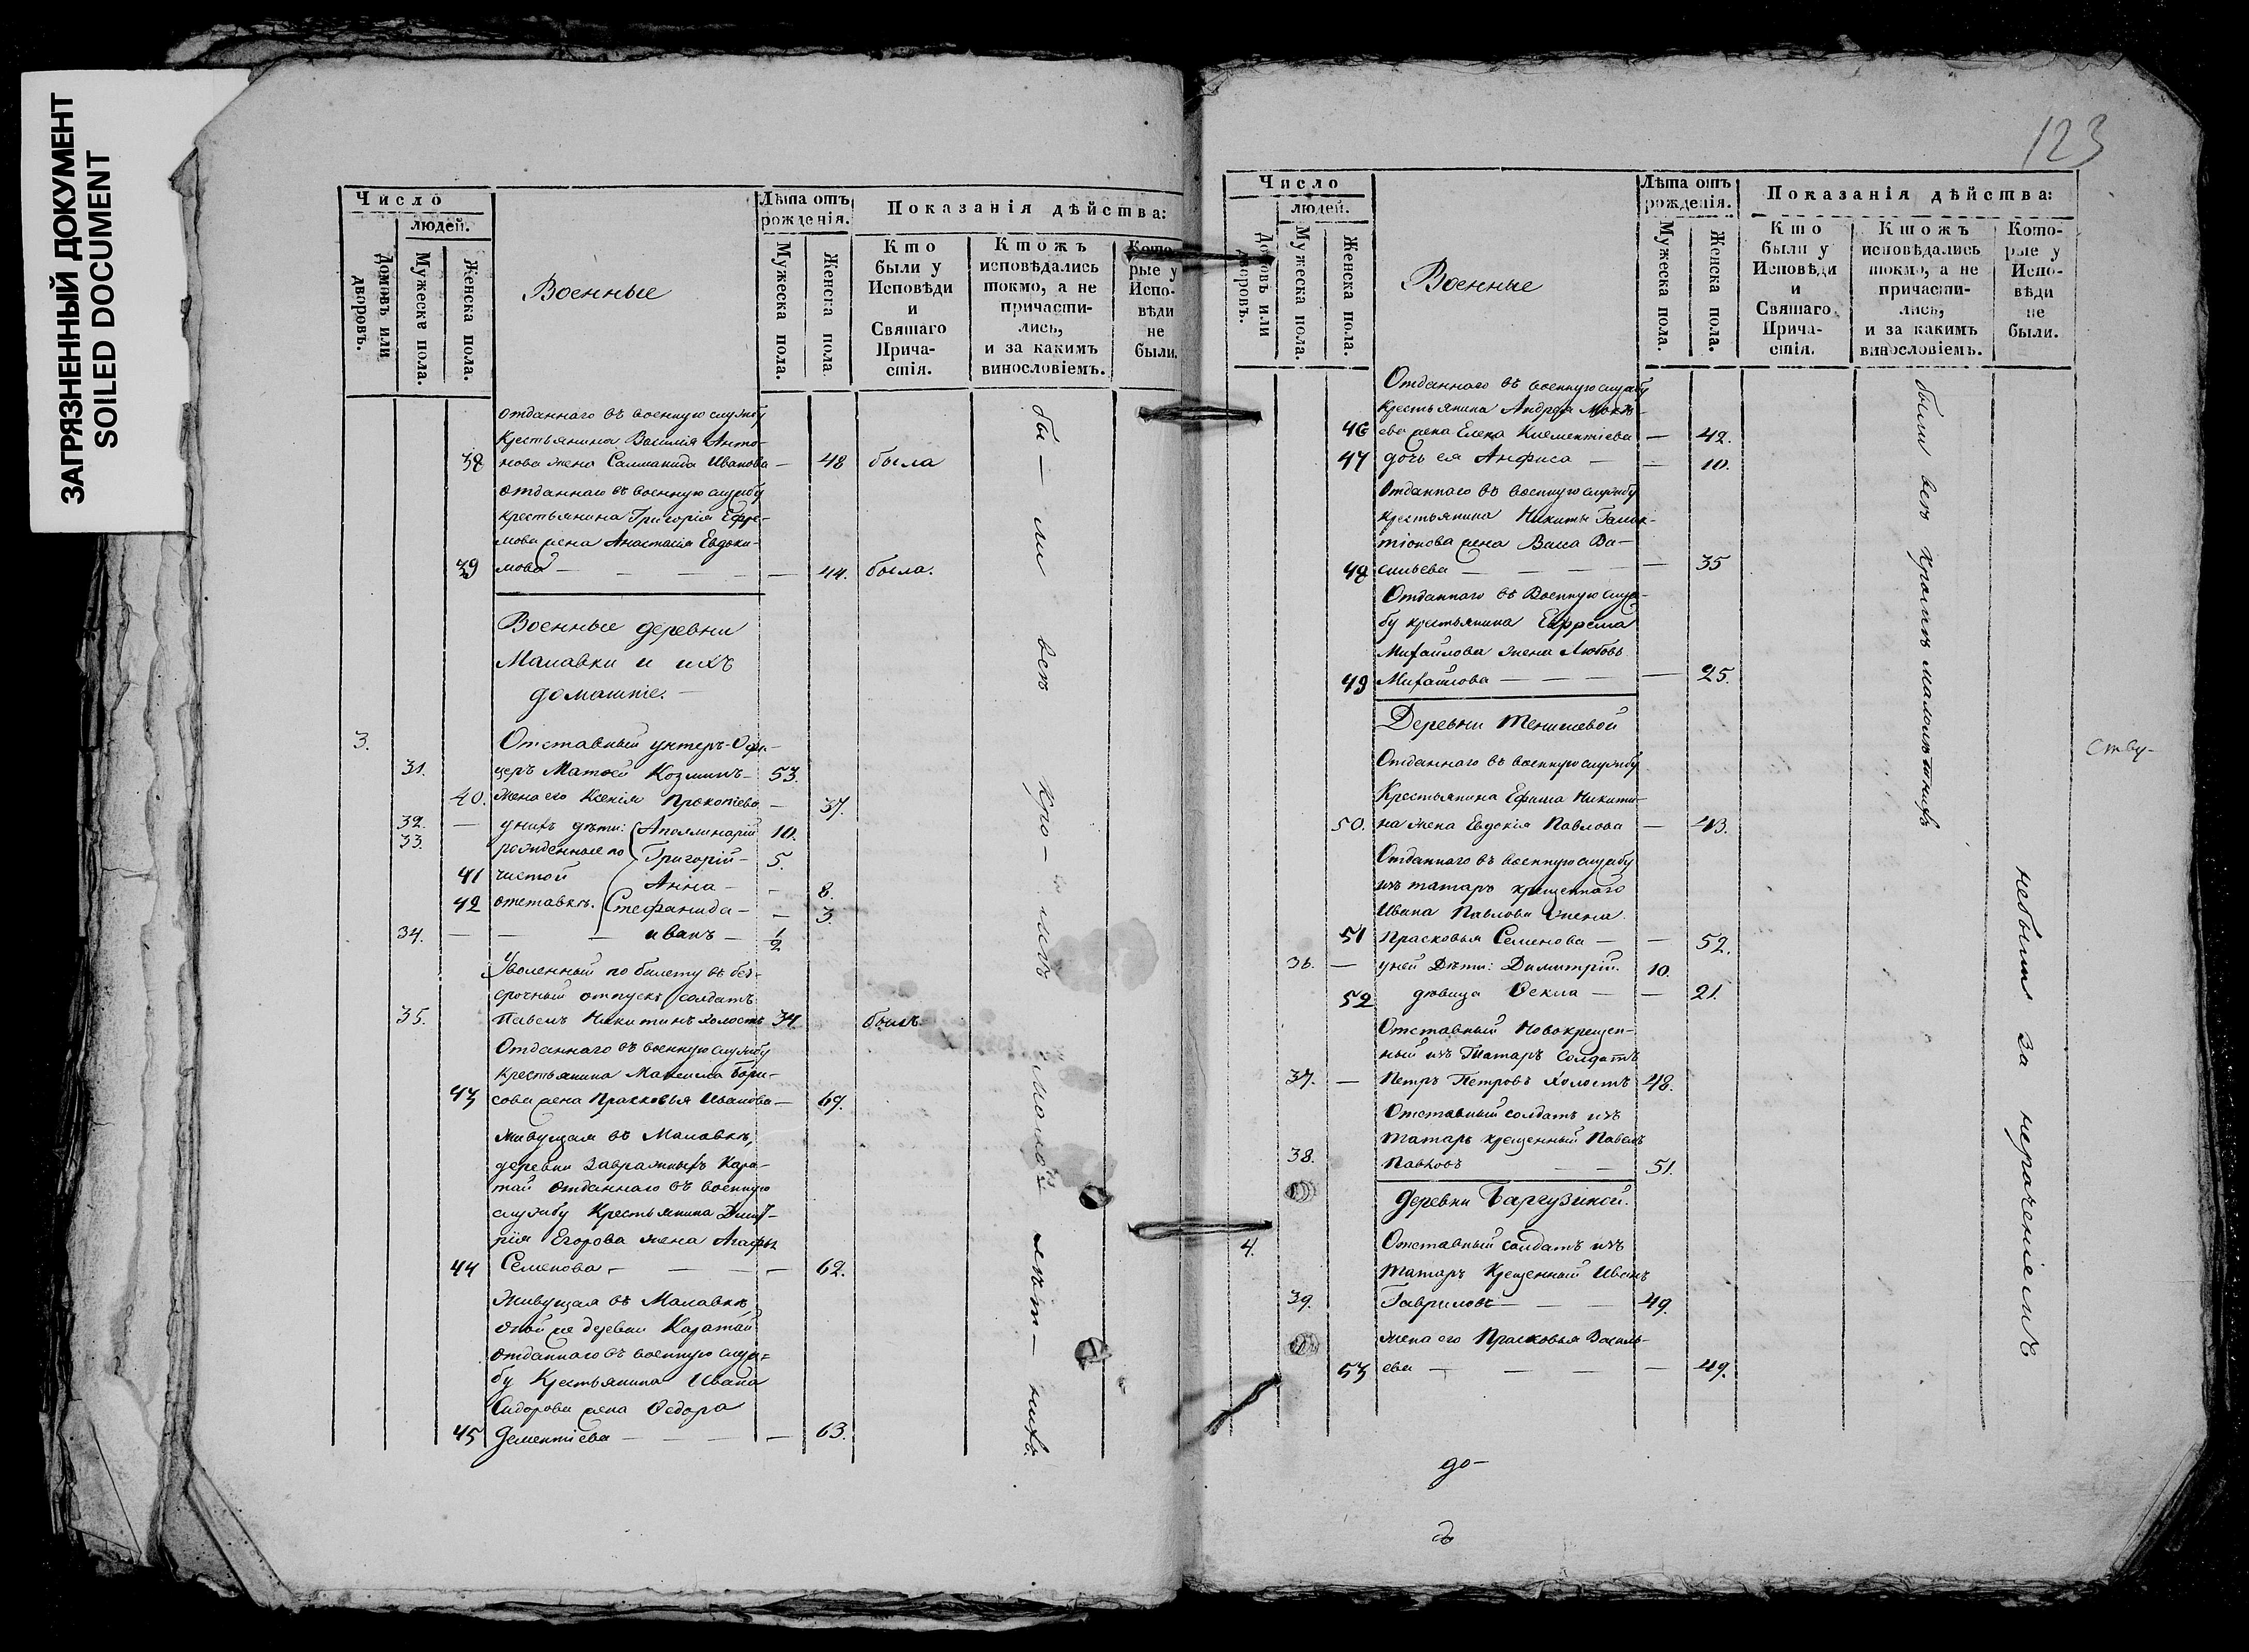 ЗАГРЯЗНЕННЫЙ ДОКУМЕНТ
SOILED DOCUMENT
Число
людей.
Домовъ или дворовъ.
Мужеска пола.
Женска пола.
Военные
Лѣта отъ рожденія.
Мужеска пола.
Женска пола
Показанія дѣйства:
Кто были у Исповѣди и Святаго Причастія.
Ктожъ исповѣдались токмо, а не причастились, и за какимъ винословіемъ.
Которые у Исповѣди не были.
отданнаго въ военную службу
крестьянина Василія Анто-
38 нова жена Саламанида Иванова — 48 была
отданнаго въ военную службу
крестьянина Григорія Ефре-
мова жена Анастасія Евдоки-
39 мова — — — — 44. была.
Военные деревни
Малавки и ихъ
домашніе.
3. Отставный унтеръ-Офи-
31. церъ Матѳей Козминъ — 53.
40. Жена его Ксенія Прокопіева — 37.
32. — у нихъ дѣти: Аполлинарій 10.
33. рожденные по Григорій — 5.
41 чистой Анна — — 8.
42 отставкѣ. Стефанида — — 3.
34. — — — иванъ — 1/2
Уволенный по билету въ без-
срочный отпускъ солдатъ
35. Павелъ Никитинъ холостъ 34 былъ
Отданнаго въ военную службу
крестьянина Максима Бори-
43 сова жена Прасковья Иванова — 69.
Живущая въ Малавкѣ,
деревни Завражныхъ Кара-
тай отданнаго въ военную
службу Крестьянина Дмит-
рія Егорова жена Агафья
44 Семенова — — — — 62.
Живущая въ Малавкѣ,
оной же деревни Каратай
отданнаго въ военную служ=
бу Крестьянина Ивана
Сидорова жена Ѳедора
45 Дементіева — — — — 63.
бы — ли всѣ кро — мѣ мало лѣт — нихъ.
123
Число
людей.
Домовъ или дворовъ.
Мужеска пола.
Женска пола.
Военные
Лѣта отъ рожденія.
Мужеска пола.
Женска пола.
Показанія дѣйства:
Кто были у Исповѣди и Святаго Причастія.
Ктожъ исповѣдались токмо, а не причастились, и за какимъ винословіемъ.
Которые у Исповѣди не были.
Отданнаго въ военную службу
крестьянина Андрея
46 ева жена Елена Клементіева — 42.
47 дочь ея Анфиса — — 10.
Отданнаго въ военную службу
крестьянина Никиты Галак-
тіонова жена Васса Ва-
48 сильева — — — — 35
Отданнаго въ Военную служ-
бу крестьянина Ефрема
Михайлова жена Любовь
49 Михайлова — — — — 25.
Деревни Тенишевой
Отданнаго въ военную службу
Крестьянина Ефима Никити-
50. на жена Евдокія Павлова — 43.
Отданнаго въ военную службу
изъ татаръ крещеннаго
Ивана Павлова жена
51 Прасковья Семенова — — 52.
36. — у ней Дѣти: Димитрій. 10.
52 дѣвица Ѳекла — — 21.
Отставный Новокрещен-
ный изъ Татаръ Солдатъ
37. — Петръ Петровъ холостъ 48.
Отставный солдатъ изъ
татаръ крещенный Павелъ
38. Павловъ — — 51.
деревни Баргузиной.
4. Отставный солдатъ изъ
татаръ Крещенный Иванъ
39. Гавриловъ — — — 49.
жена его Прасковья Василь-
53 ева — — — — 49.
были всѣ кромѣ малолѣтнихъ
небыли за нерачениемъ
ству-
до-